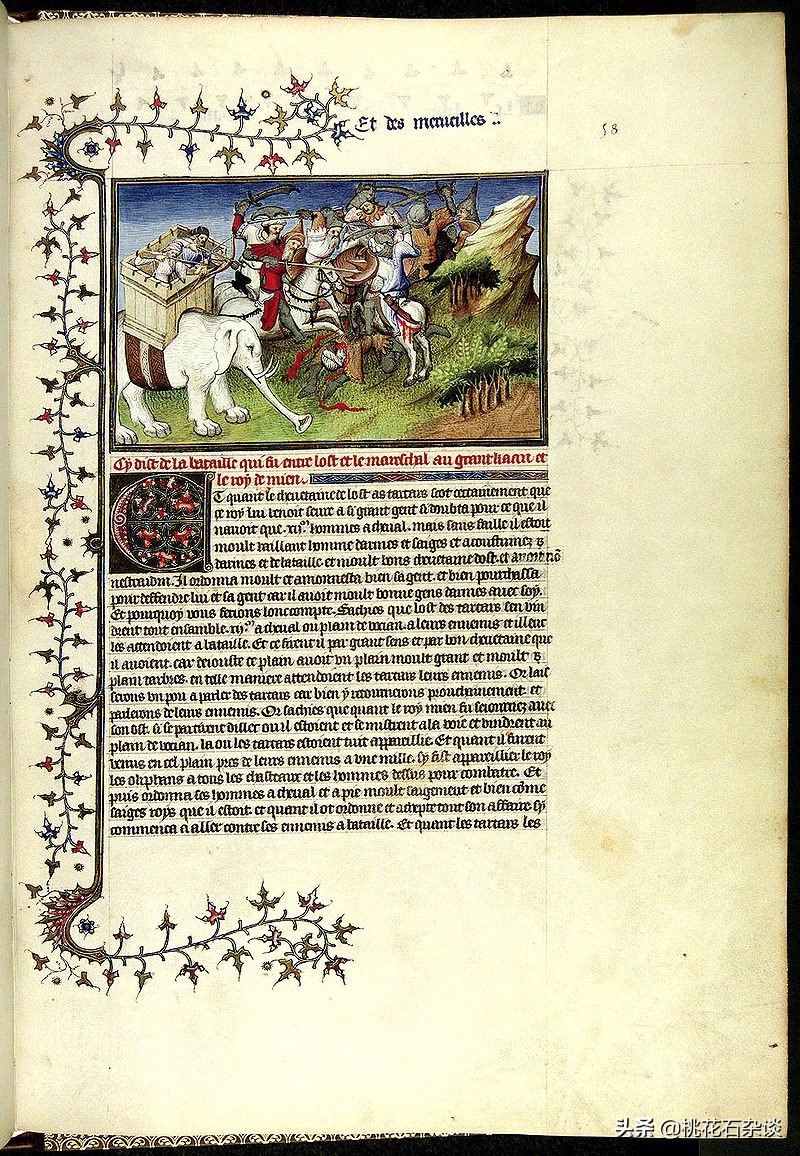 Et des merueilles
58
Cy dist de la bataille qui fu entre lost et le mareschal au grant kaan et
le roy de mien.
Et quant le cheuetaine de lost as tartars scot certainement que
ce roy lui venoit seure a si grant gent si doubta pour ce que il
nauoit que .xij.m hommes a cheual. mais sans faille il estoit
moult vaillant homme darmes et saiges et acoustumez
darmes et de bataille et moult bons cheuetaine dost. et
Il ordonna moult et amonnesta bien sa gent. et bien pourchassa
pour deffendre lui et sa gent car il auoit moult bonne gens darmes auec soy.
Et pourquoy vous feroions lonc compte. Sachies que lost des tartars sen vin
drent tout ensamble .xij.m a cheual ou plain de vocian. a leurs ennemis et illeuc
les attendoient a bataille. Et ce firent il par grant sens et par bon cheuetaine que
il auoient. car deiouste ce plain auoit vn plain moult grant et moult
plain darbres. en telle maniere attendoient les tartars leurs ennemis. Or lais
serons vn pou a parler des tartars car bien y retournerons prouchainement. et
parlerons de leurs ennemis. Or sachies que quant le roy mien fu seiournez auec
son ost. si se partirent dillec ou il estoient et se mistrent a la voie et vindrent au
plain de vocian. la ou les tartars estoient tuit appareillie. Et quant il furent
venus en cel plain pres de leurs ennemis a vne mille. sy fist appareillier le roy
les oliphans a tous les chasteaux et les hommes dessus pour combatre. Et
puis ordonna ses hommes a cheual et a pie moult saigement et bien come
saiges roys que il estoit. et quant il ot ordonne et tout son affaire sy
commenca a aller contre ses ennemis a bataille. Et quant les tartars les
头条 @桃花石杂谈